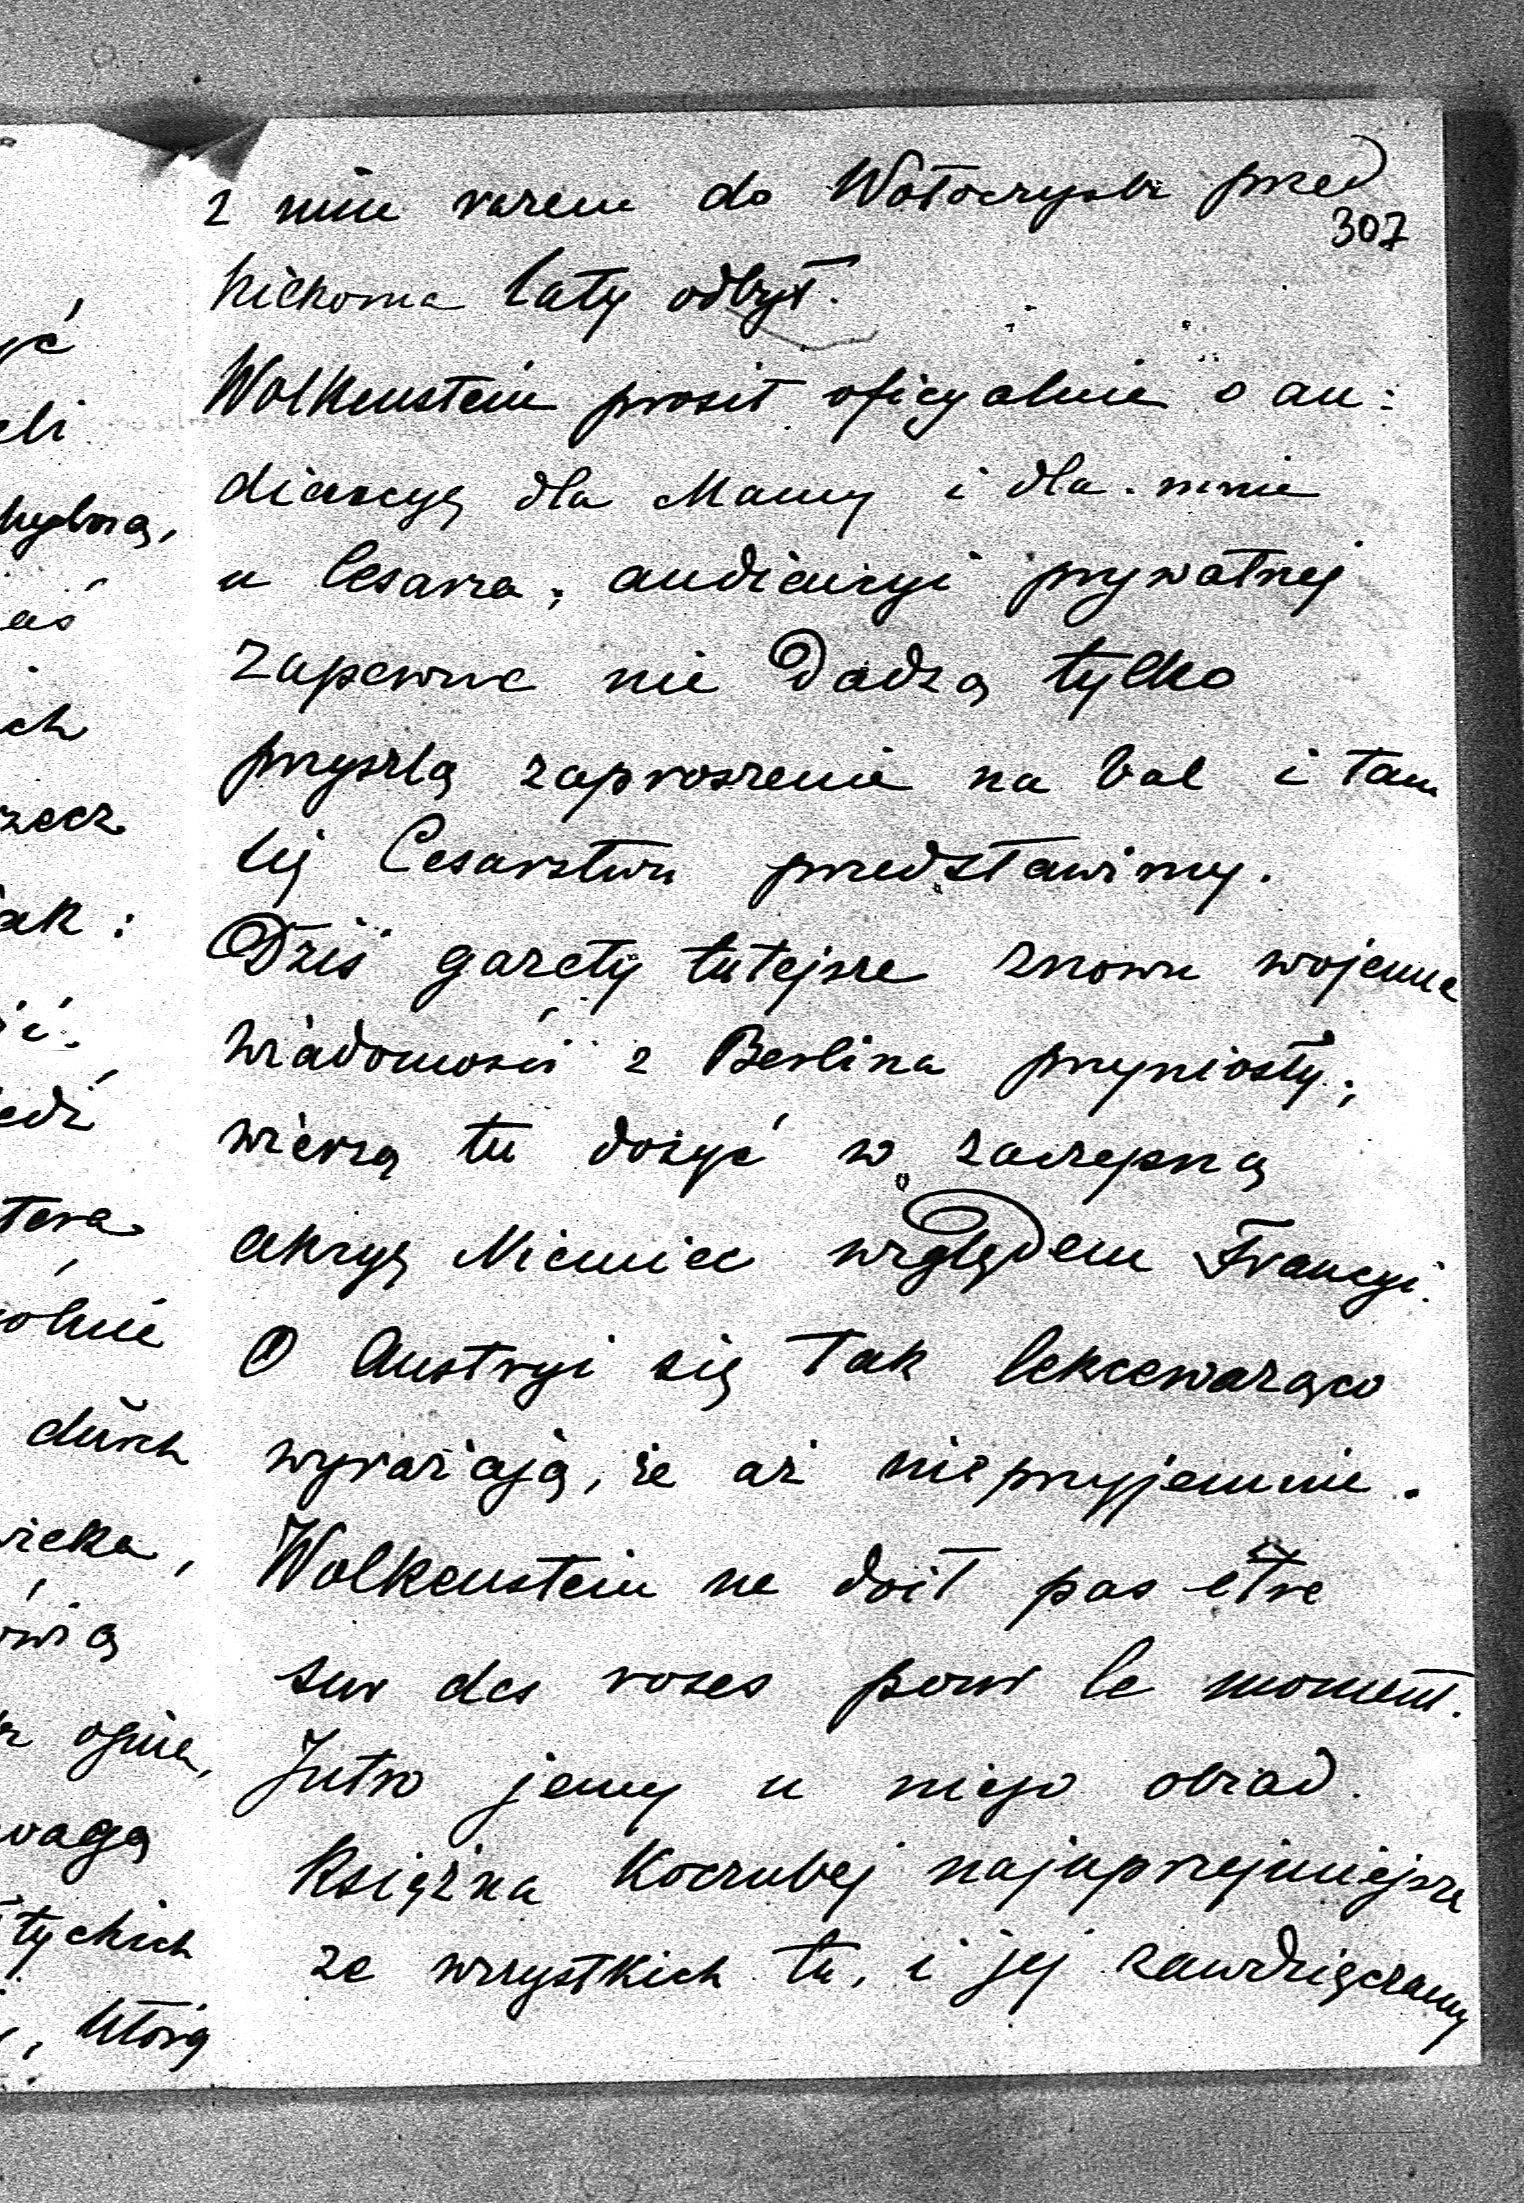 z nim razem do Wołoczysk przed
307
kilkoma laty odbył.
Wolkenstein prosił oficyalnie o au:
diencyę dla Mamy i dla mnie
u Cesarza; audiencyi prywatnej
zapewne nie dadzą tylko
przyszlą zaproszenie na bal i tam
się Cesarstwu przedstawimy.
Dziś gazety tutejsze znowu wojenne
wiadomości z Berlina przyniosły;
wierzą tu dosyć w zaczepną
akcyę Niemiec względem Francyi.
O Austryi się tak lekceważąco
wyrażają, że aż nieprzyjemnie.
Wolkenstein ne doit pas être
sur des roses pour le moment.
Jutro jemy u niego obiad.
Księżna Koczubej najuprzejmiejsza
ze wszystkich tu, i jej zawdzięczamy
yć
eli
chybną,
aś
ich
rzecz
jak:
ić.
edź
tera
olnie
durch
wieka,
ówią
ognia,
wagą
tyckich
, którą